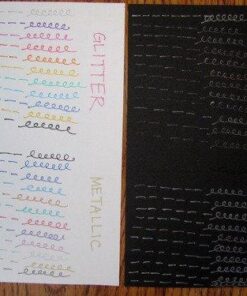 GLITTER
METALLIC